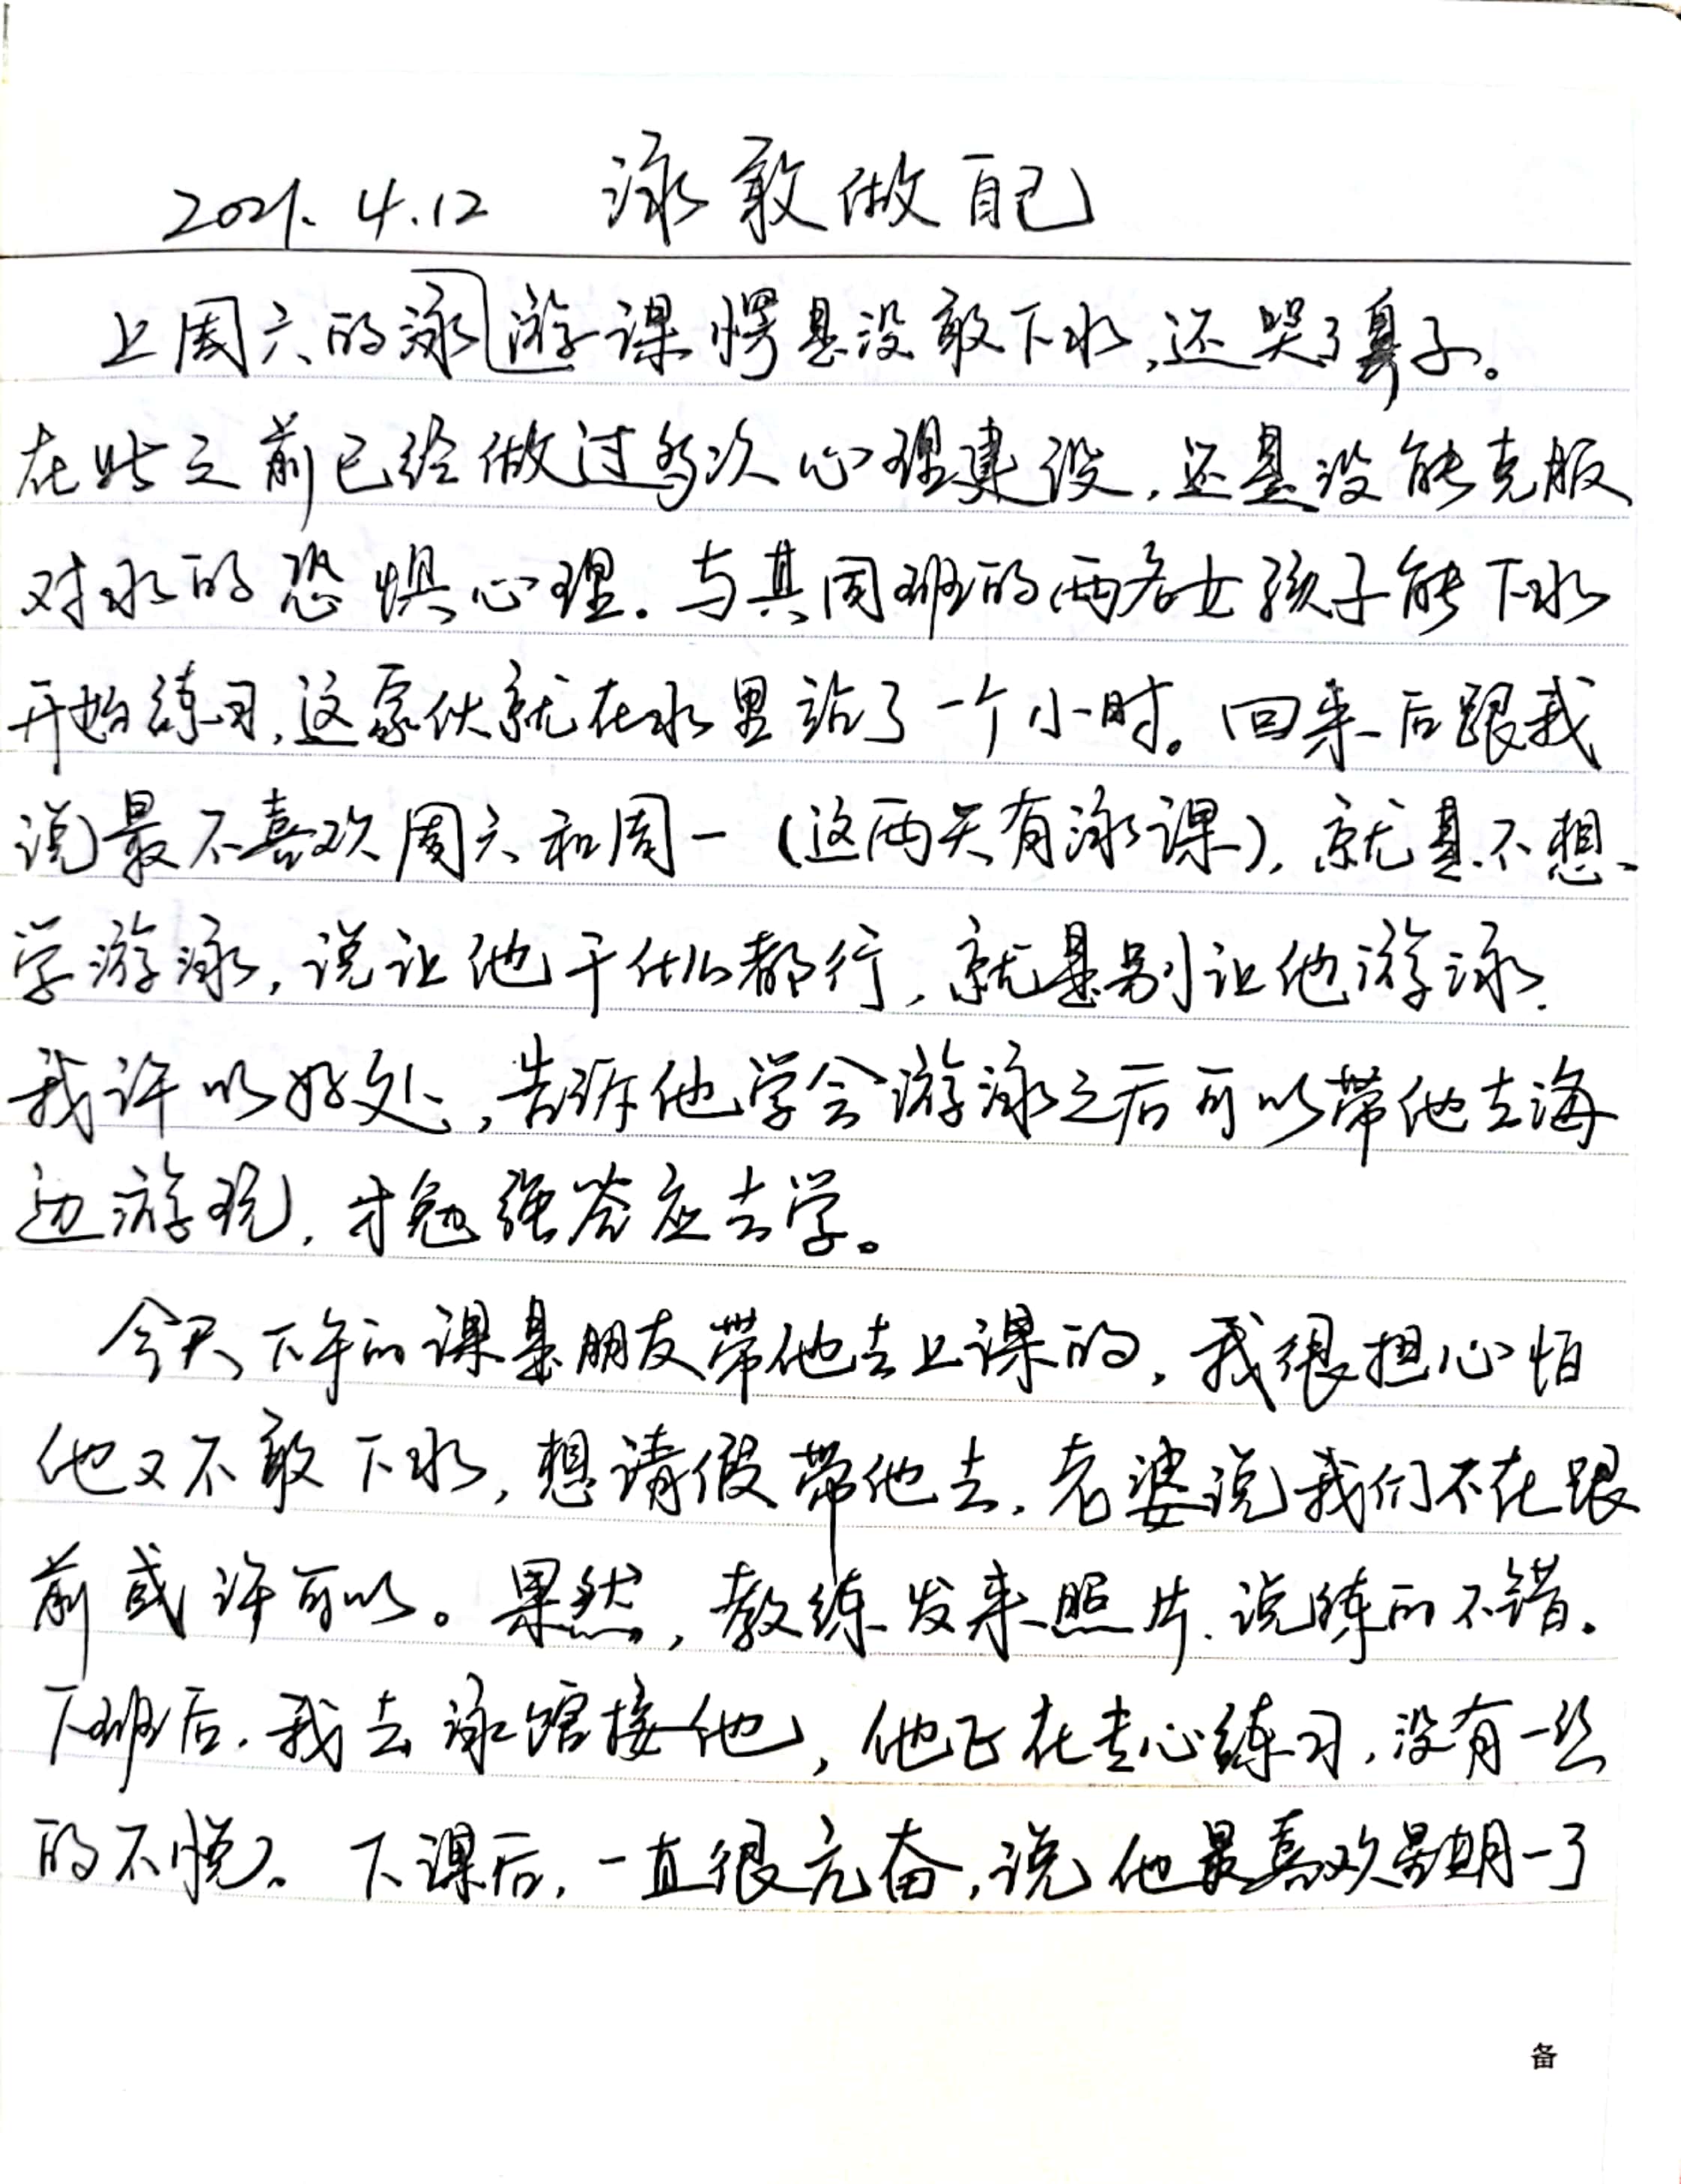 2021.4.12 泳敢做自己
上周六的泳游课愣是没敢下水,还哭了鼻子。
在此之前已经做过多次心理建设,还是没能克服
对水的恐惧心理。与其同班的两名女孩子能下水
开始练习,这家伙就在水里站了一个小时。回来后跟我
说最不喜欢周六和周一(这两天有泳课),就是不想
学游泳,说让他干什么都行,就是别让他游泳.
我许以好处,告诉他学会游泳之后可以带他去海
边游玩,才勉强答应去学。
今天下午的课是朋友带他去上课的,我很担心怕
他又不敢下水,想请假带他去.老婆说我们不在跟
前或许可以。果然,教练发来照片.说练的不错.
下班后.我去泳馆接他,他正在专心练习,没有一丝
的不悦。下课后,一直很亢奋,说他最喜欢星期一了
备